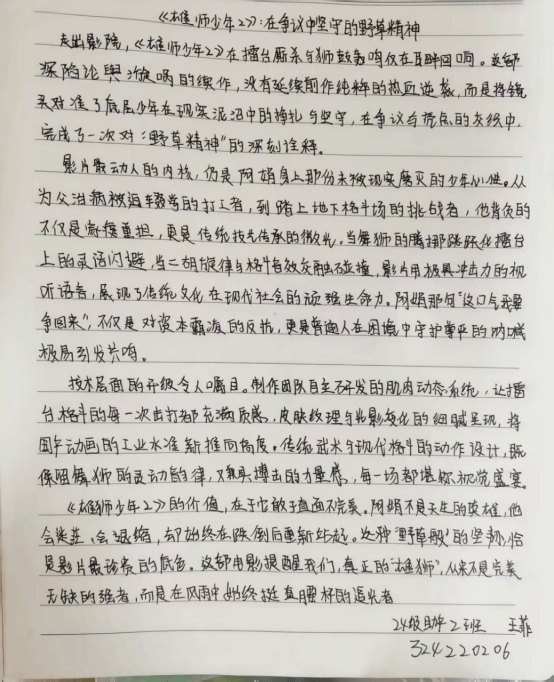 《雄师少年2》:在争议中坚守的野草精神
走出影院,《雄师少年2》在擂台厮杀与狮鼓轰鸣仍在耳畔回响。这部
深陷论舆漩涡的续作,没有延续前作纯粹的热血逆袭,而是将镜
头对准了底层少年在现实泥沼中的挣扎与坚守,在争议与亮点的交织中,
完成了一次对"野草精神"的深刻诠释。
影片最动人的内核,仍是阿娟身上那份未被现实磨灭的少年心性。从
为父治病被迫辍学的打工者,到踏上地下格斗场的挑战者,他背负的
不仅是家庭重担,更是传统技艺传承的微光。当舞狮的腾挪跳跃化擂台
上的灵活闪避,当二胡旋律与格斗音效交融碰撞,影片用极具冲击力的视
听语言,展现了传统文化在现代社会的顽强生命力。阿娟那句"这口气我要
争回来",不仅是对资本霸凌的反抗,更是普通人在困境中守护尊严的呐喊
极易引发共鸣。
技术层面的升级令人嘱目。制作团队自主研发的肌肉动态系统,让擂
台格斗的每一次出打都充满质感,皮肤纹理与光影变化的细腻呈现,将
国产动画的工业水准新推向高度。传统武术与现代格斗的动作设计,既
保留舞狮的灵动韵律,又兼具搏击的力量感,每一场都堪称视觉盛宴。
《雄师少年2》的价值,在于它敢于直面不完美。阿娟不是天生的英雄,他
会迷茫、会退缩,却始终在跌倒后重新站起。这种"野草般"的坚韧,恰
是影片最珍贵的底色。这部电影提醒我们,真正的"雄狮",从来不是完美
无缺的强者,而是在风雨中始终挺直腰杆的追光者
24级 2班 王菲
324220206